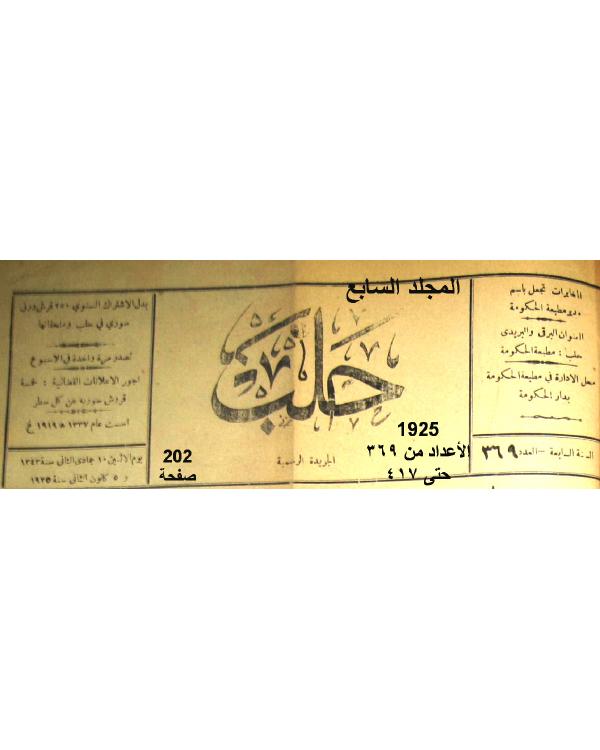 المجلد السابع
المخابرات تجعل باسم
مدير مطبعة الحكومة
العنوان البرقي والبريدي
حلب : مطبعة الحكومة
محل الادارة في مطبعة الحكومة
بدار الحكومة
السنة السابعة – العدد ٣٦٩
حلب
الجريدة الرسمية
1925
الأعداد من ٣٦٩
حتى ٤١٧
202
صفحة
بدل الاشتراك السنوي ٢٥٠ قرش ورق
سوري في حلب وملحقاتها
تصدر مرة واحدة في الاسبوع
اجور الاعلانات القضائية : خمسة
قروش سورية عن كل سطر
اسست عام ١٣٣٧ ه ١٩١٩ م
يوم الاثنين ١٠ جمادى الثاني سنة ١٣٤٣
و ٥ كانون الثاني سنة ١٩٢٥